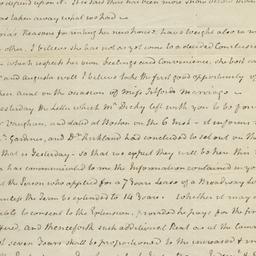 depend upon it. It is said there has been more snow below than
was taken away what we had
Reasons for raising her new house, have weight also in my
other. I believe she has not as yet come to a decided Conclusion
which respects her own feelings and Convenience, she
and Augusta well I believe take the first good opportunity of
on the occasion of Miss Telfords Marriage
yesterday the Letter which Mr Dicky left with you to be for
Vaughan, and dated at Boston on the 6 Inst - it informs
Gardner, and Dr Kirkland had concluded to set out on Th
that is Yesterday - so that we expect they will be here this
has communicated to me the Information contained in yo
the Person who applied for a 7 years Lease of a Broadway Lo
unless the Term be extended to 14 Years. Whether it may
to consent to the Extension, provided he pays for the fir
and thenceforth such additional Rent as at the Com
of seven Years shall be proportionate to the increased